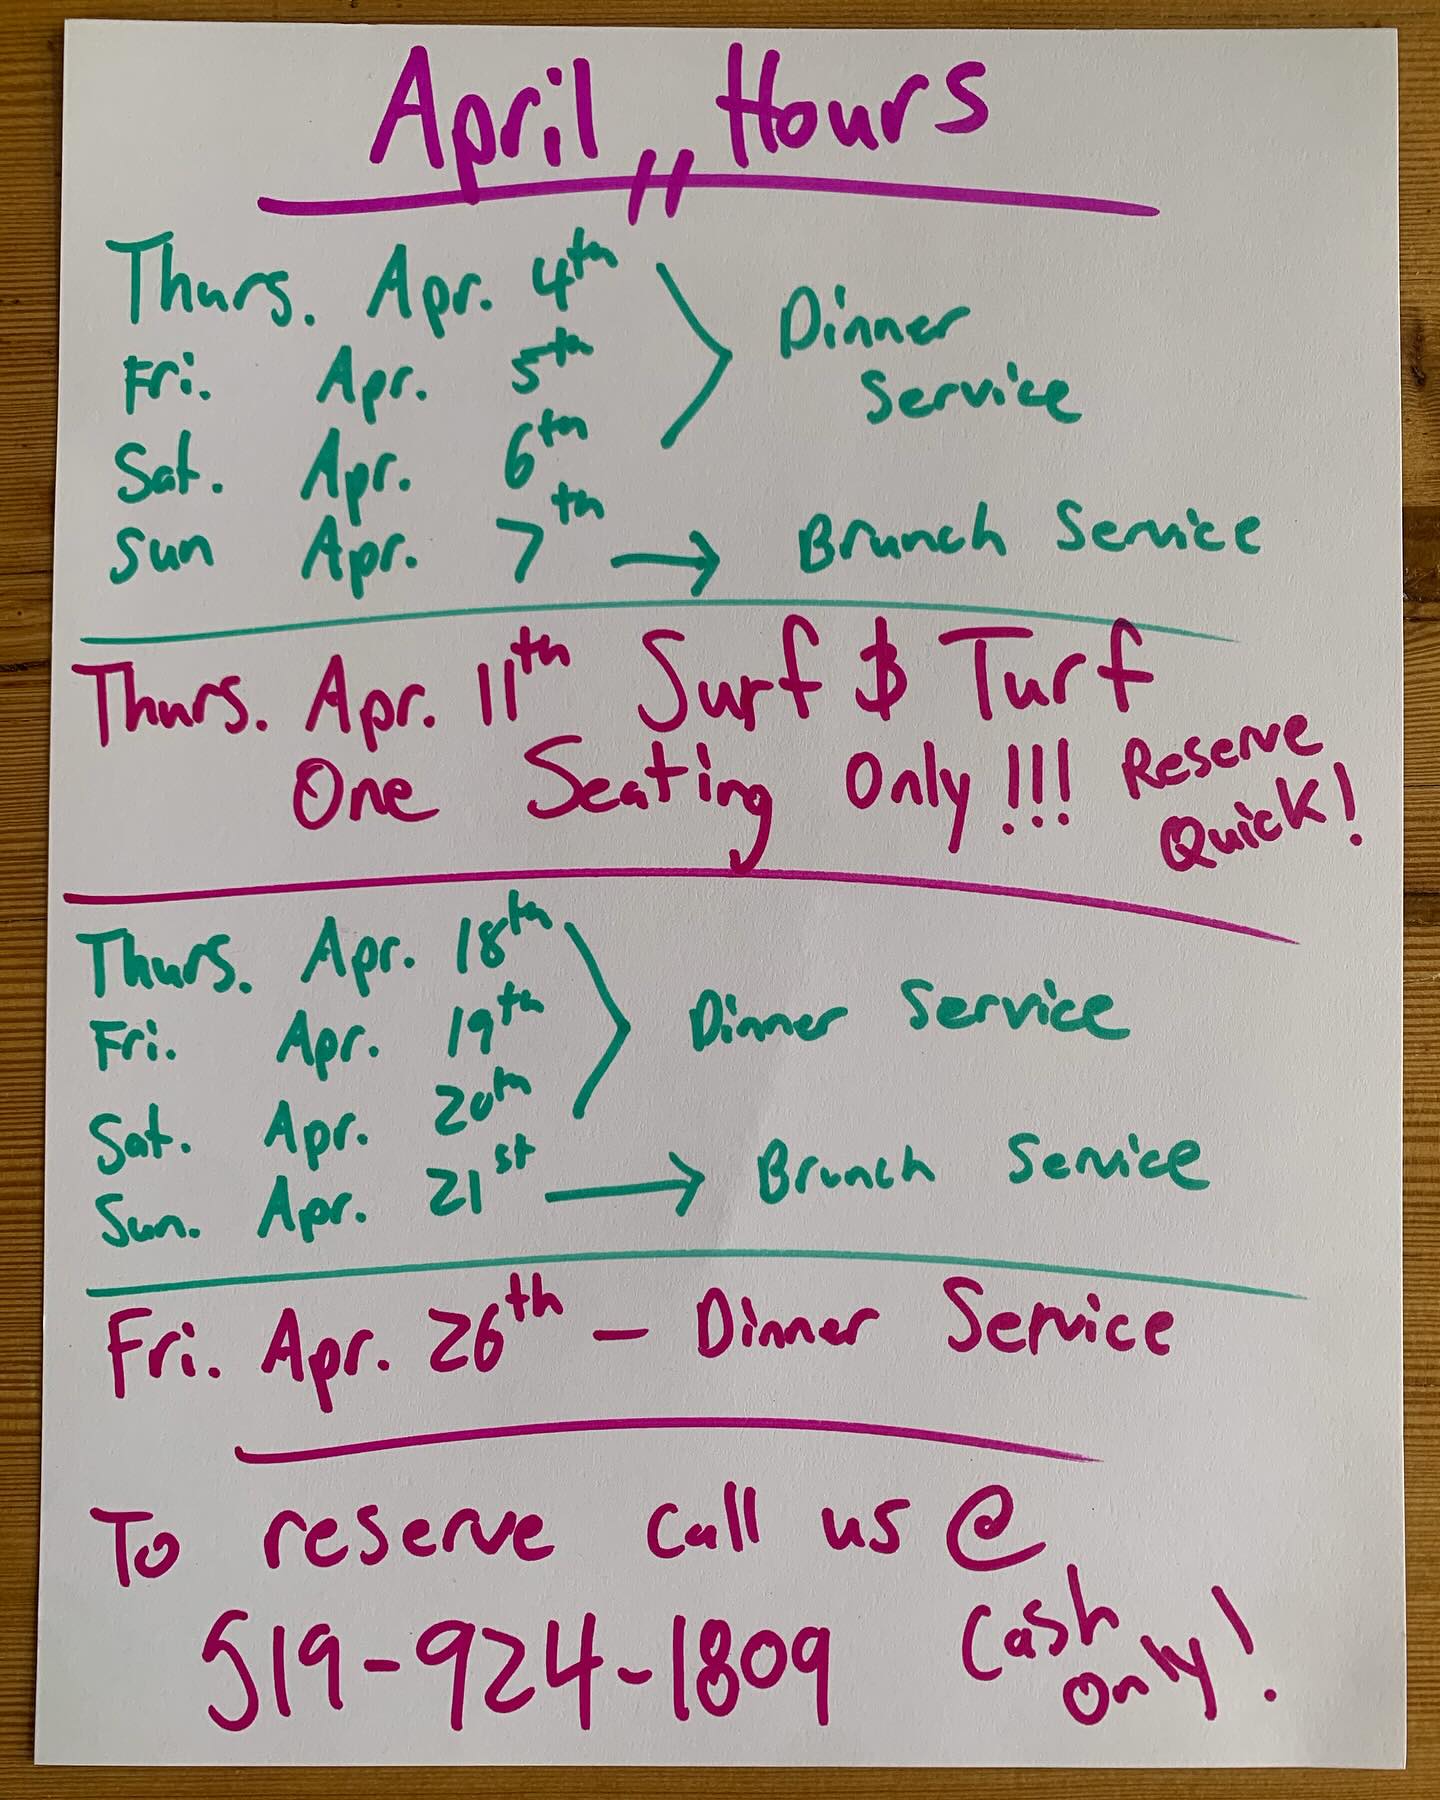 April Hours
Thurs. Apr. 4th
Fri. Apr. 5th
Sat. Apr. 6th
Dinner
Service
Sun Apr. 7th → Brunch Service
Thurs. Apr. 11th Surf & Turf
One Seating Only!!! Reserve
Quick!
Thurs. Apr. 18th
Fri. Apr. 19th
Sat. Apr. 20th
Dinner Service
Sun. Apr. 21st → Brunch Service
Fri. Apr. 26th - Dinner Service
To reserve call us @
519-924-1809
Cash
Only!